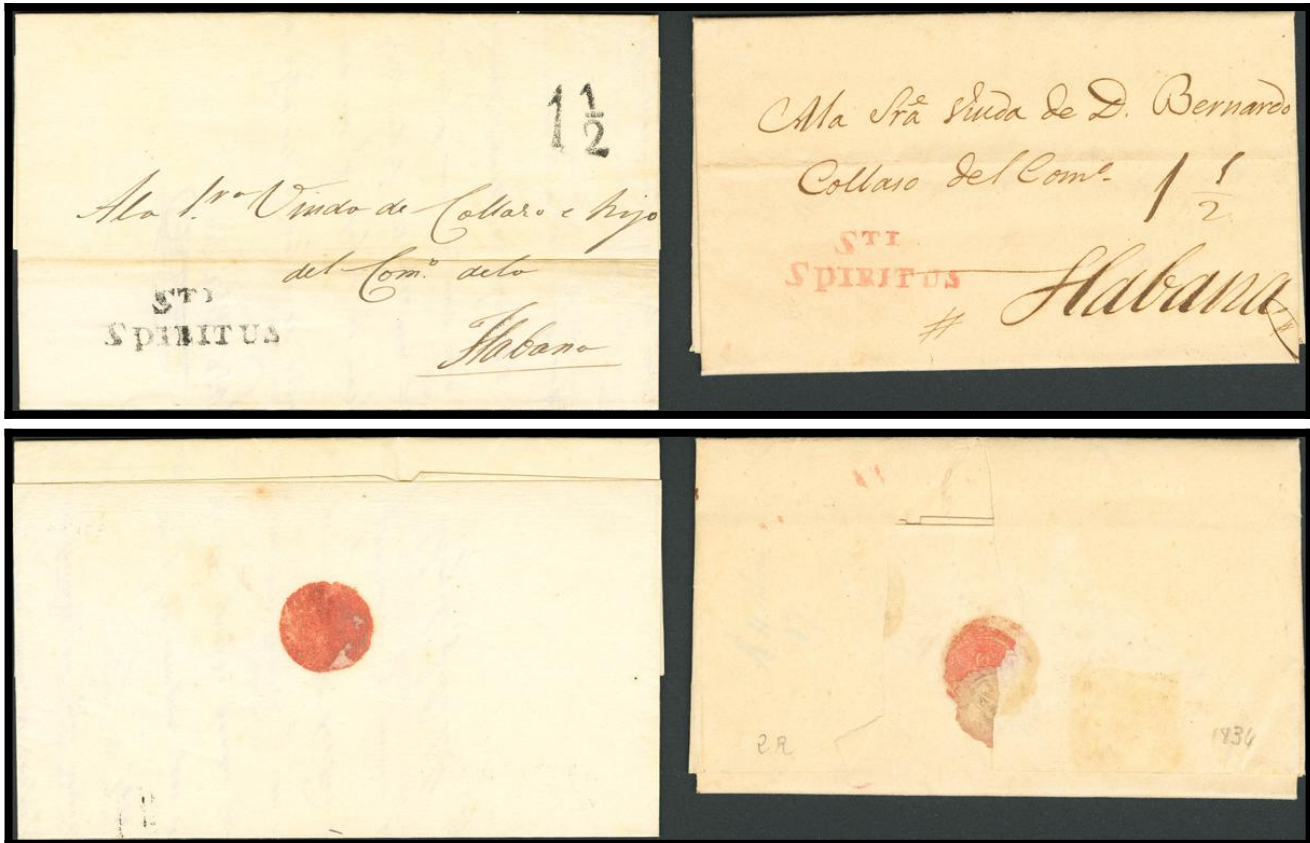 1 1/2
A la Sra Viuda de Collazo e hijo
del Como de la
STI
SPIRITUS
Habana
A la Sra Viuda de D. Bernardo
Collaso del Come
1 1/2
STI
SPIRITUS
Habana
#
R.R
1834